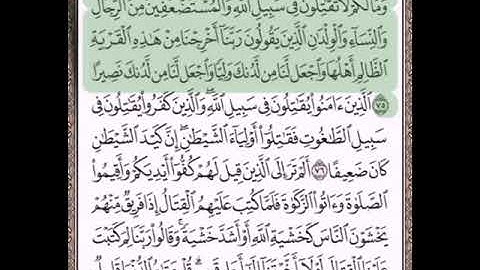 وَمَا لَكُمْ لَا تُقَٰتِلُونَ فِي سَبِيلِ ٱللَّهِ وَٱلْمُسْتَضْعَفِينَ مِنَ ٱلرِّجَالِ
وَٱلنِّسَآءِ وَٱلْوِلْدَٰنِ ٱلَّذِينَ يَقُولُونَ رَبَّنَآ أَخْرِجْنَا مِنْ هَٰذِهِ ٱلْقَرْيَةِ
ٱلظَّالِمِ أَهْلُهَا وَٱجْعَل لَّنَا مِن لَّدُنكَ وَلِيًّا وَٱجْعَل لَّنَا مِن لَّدُنكَ نَصِيرًا
٧٥ ٱلَّذِينَ ءَامَنُوا۟ يُقَٰتِلُونَ فِي سَبِيلِ ٱللَّهِ ۖ وَٱلَّذِينَ كَفَرُوا۟ يُقَٰتِلُونَ فِي
سَبِيلِ ٱلطَّٰغُوتِ فَقَٰتِلُوٓا۟ أَوْلِيَآءَ ٱلشَّيْطَٰنِ ۖ إِنَّ كَيْدَ ٱلشَّيْطَٰنِ
كَانَ ضَعِيفًا ٧٦ أَلَمْ تَرَ إِلَى ٱلَّذِينَ قِيلَ لَهُمْ كُفُّوٓا۟ أَيْدِيَكُمْ وَأَقِيمُوا۟
ٱلصَّلَوٰةَ وَءَاتُوا۟ ٱلزَّكَوٰةَ فَلَمَّا كُتِبَ عَلَيْهِمُ ٱلْقِتَالُ إِذَا فَرِيقٌ مِّنْهُمْ
يَخْشَوْنَ ٱلنَّاسَ كَخَشْيَةِ ٱللَّهِ أَوْ أَشَدَّ خَشْيَةً ۚ وَقَالُوا۟ رَبَّنَا لِمَ كَتَبْتَ